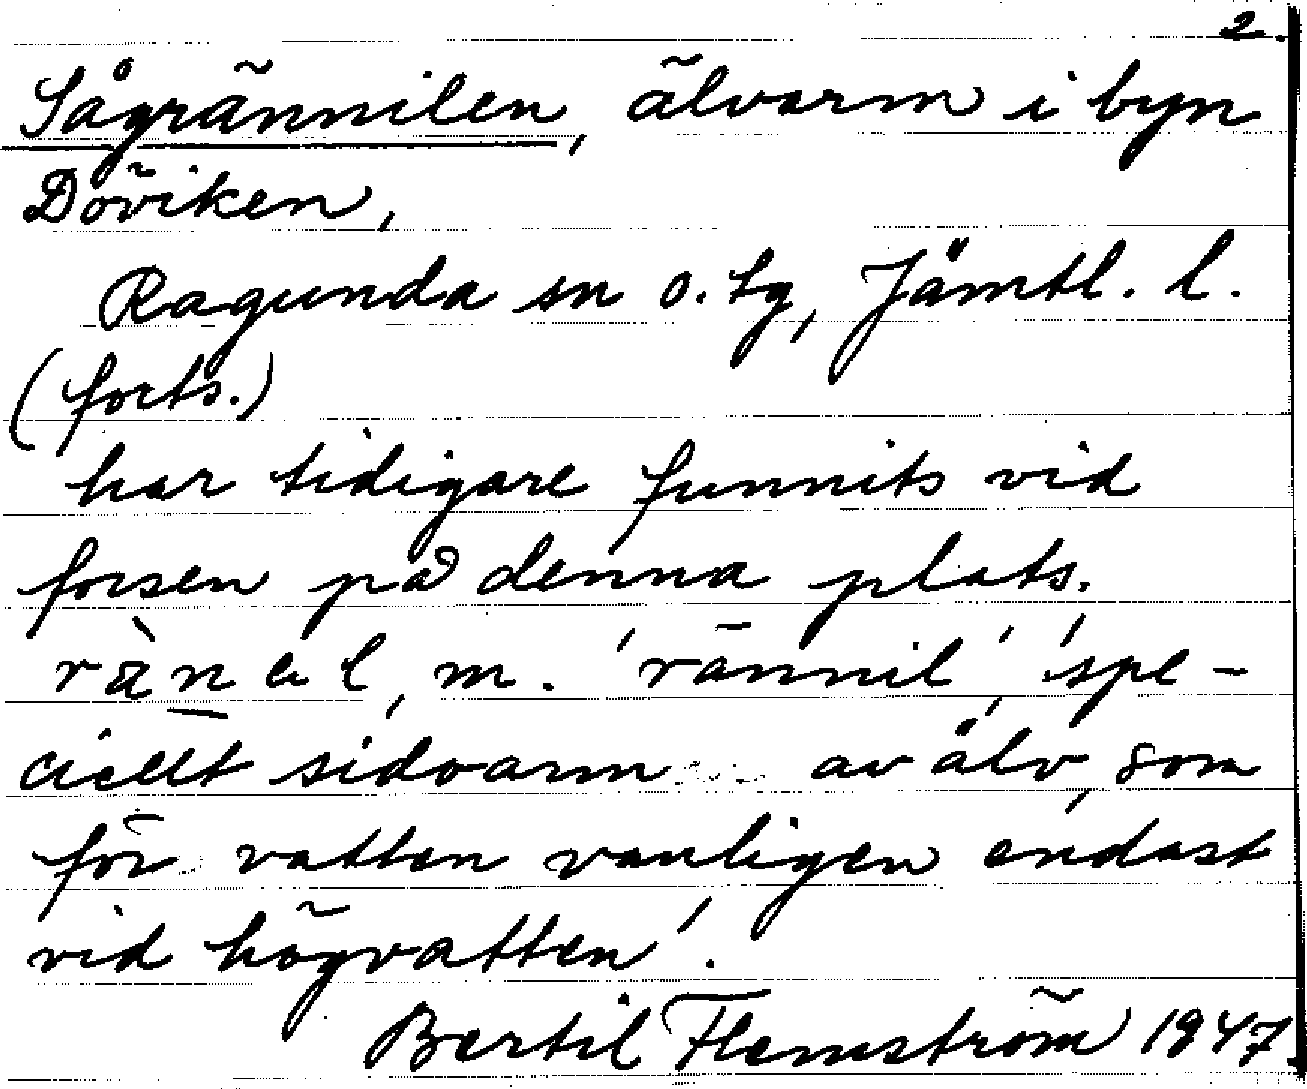 2.
Sågrännilen, älvarm i byn
Döviken,
Ragunda sn o. tg, Jämtl. l.
(forts.)
har tidigare funnits vid
forsen på denna plats.
ràṉel, m. 'rännil', 'spe-
ciellt sidoarm av älv, som
för vatten vanligen endast
vid högvatten'.
Bertil Flemström 1947.